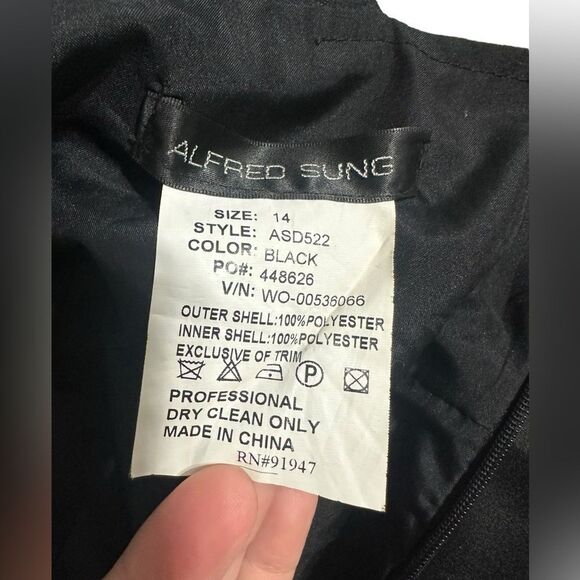 ALFRED SUNG
SIZE: 14
STYLE: ASD522
COLOR: BLACK
PO#: 448626
V/N: WO-00536066
OUTER SHELL:100%POLYESTER
INNER SHELL:100%POLYESTER
EXCLUSIVE OF TRIM
P
PROFESSIONAL
DRY CLEAN ONLY
MADE IN CHINA
RN#91947